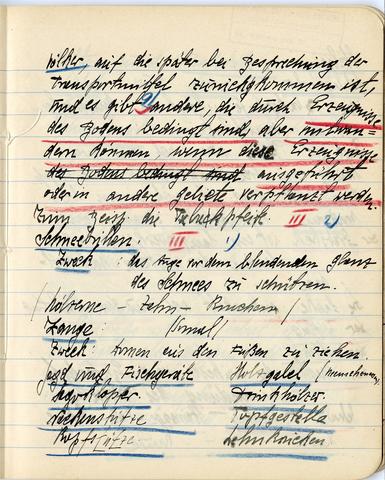 Völker, auf die später bei Besprechung der
Transportmittel zurückgekommen ist,
und es gibt 2) andere, die durch Erzeugnisse
des Bodens bedingt sind, aber
dern können, wenn diese Erzeugnisse
des Bodens bedingt sind ausgeführt
oder in andere Gebiete verpflanzt werden.
Zum Beisp. die Tabackpfeife. III 2)
Schneebrillen. III 1)
Zweck : das Auge vor dem blendenden Glanz
des Schnees zu schützen.
/ hölzerne - Zahn - Knochen /
Zange :
Zweck : Dornen aus den Füßen zu ziehen.
Jagd und Fischgeräte Holzgabel /
Trinkhölzer
Rückenstütze Topfgestelle
Kopfstütze